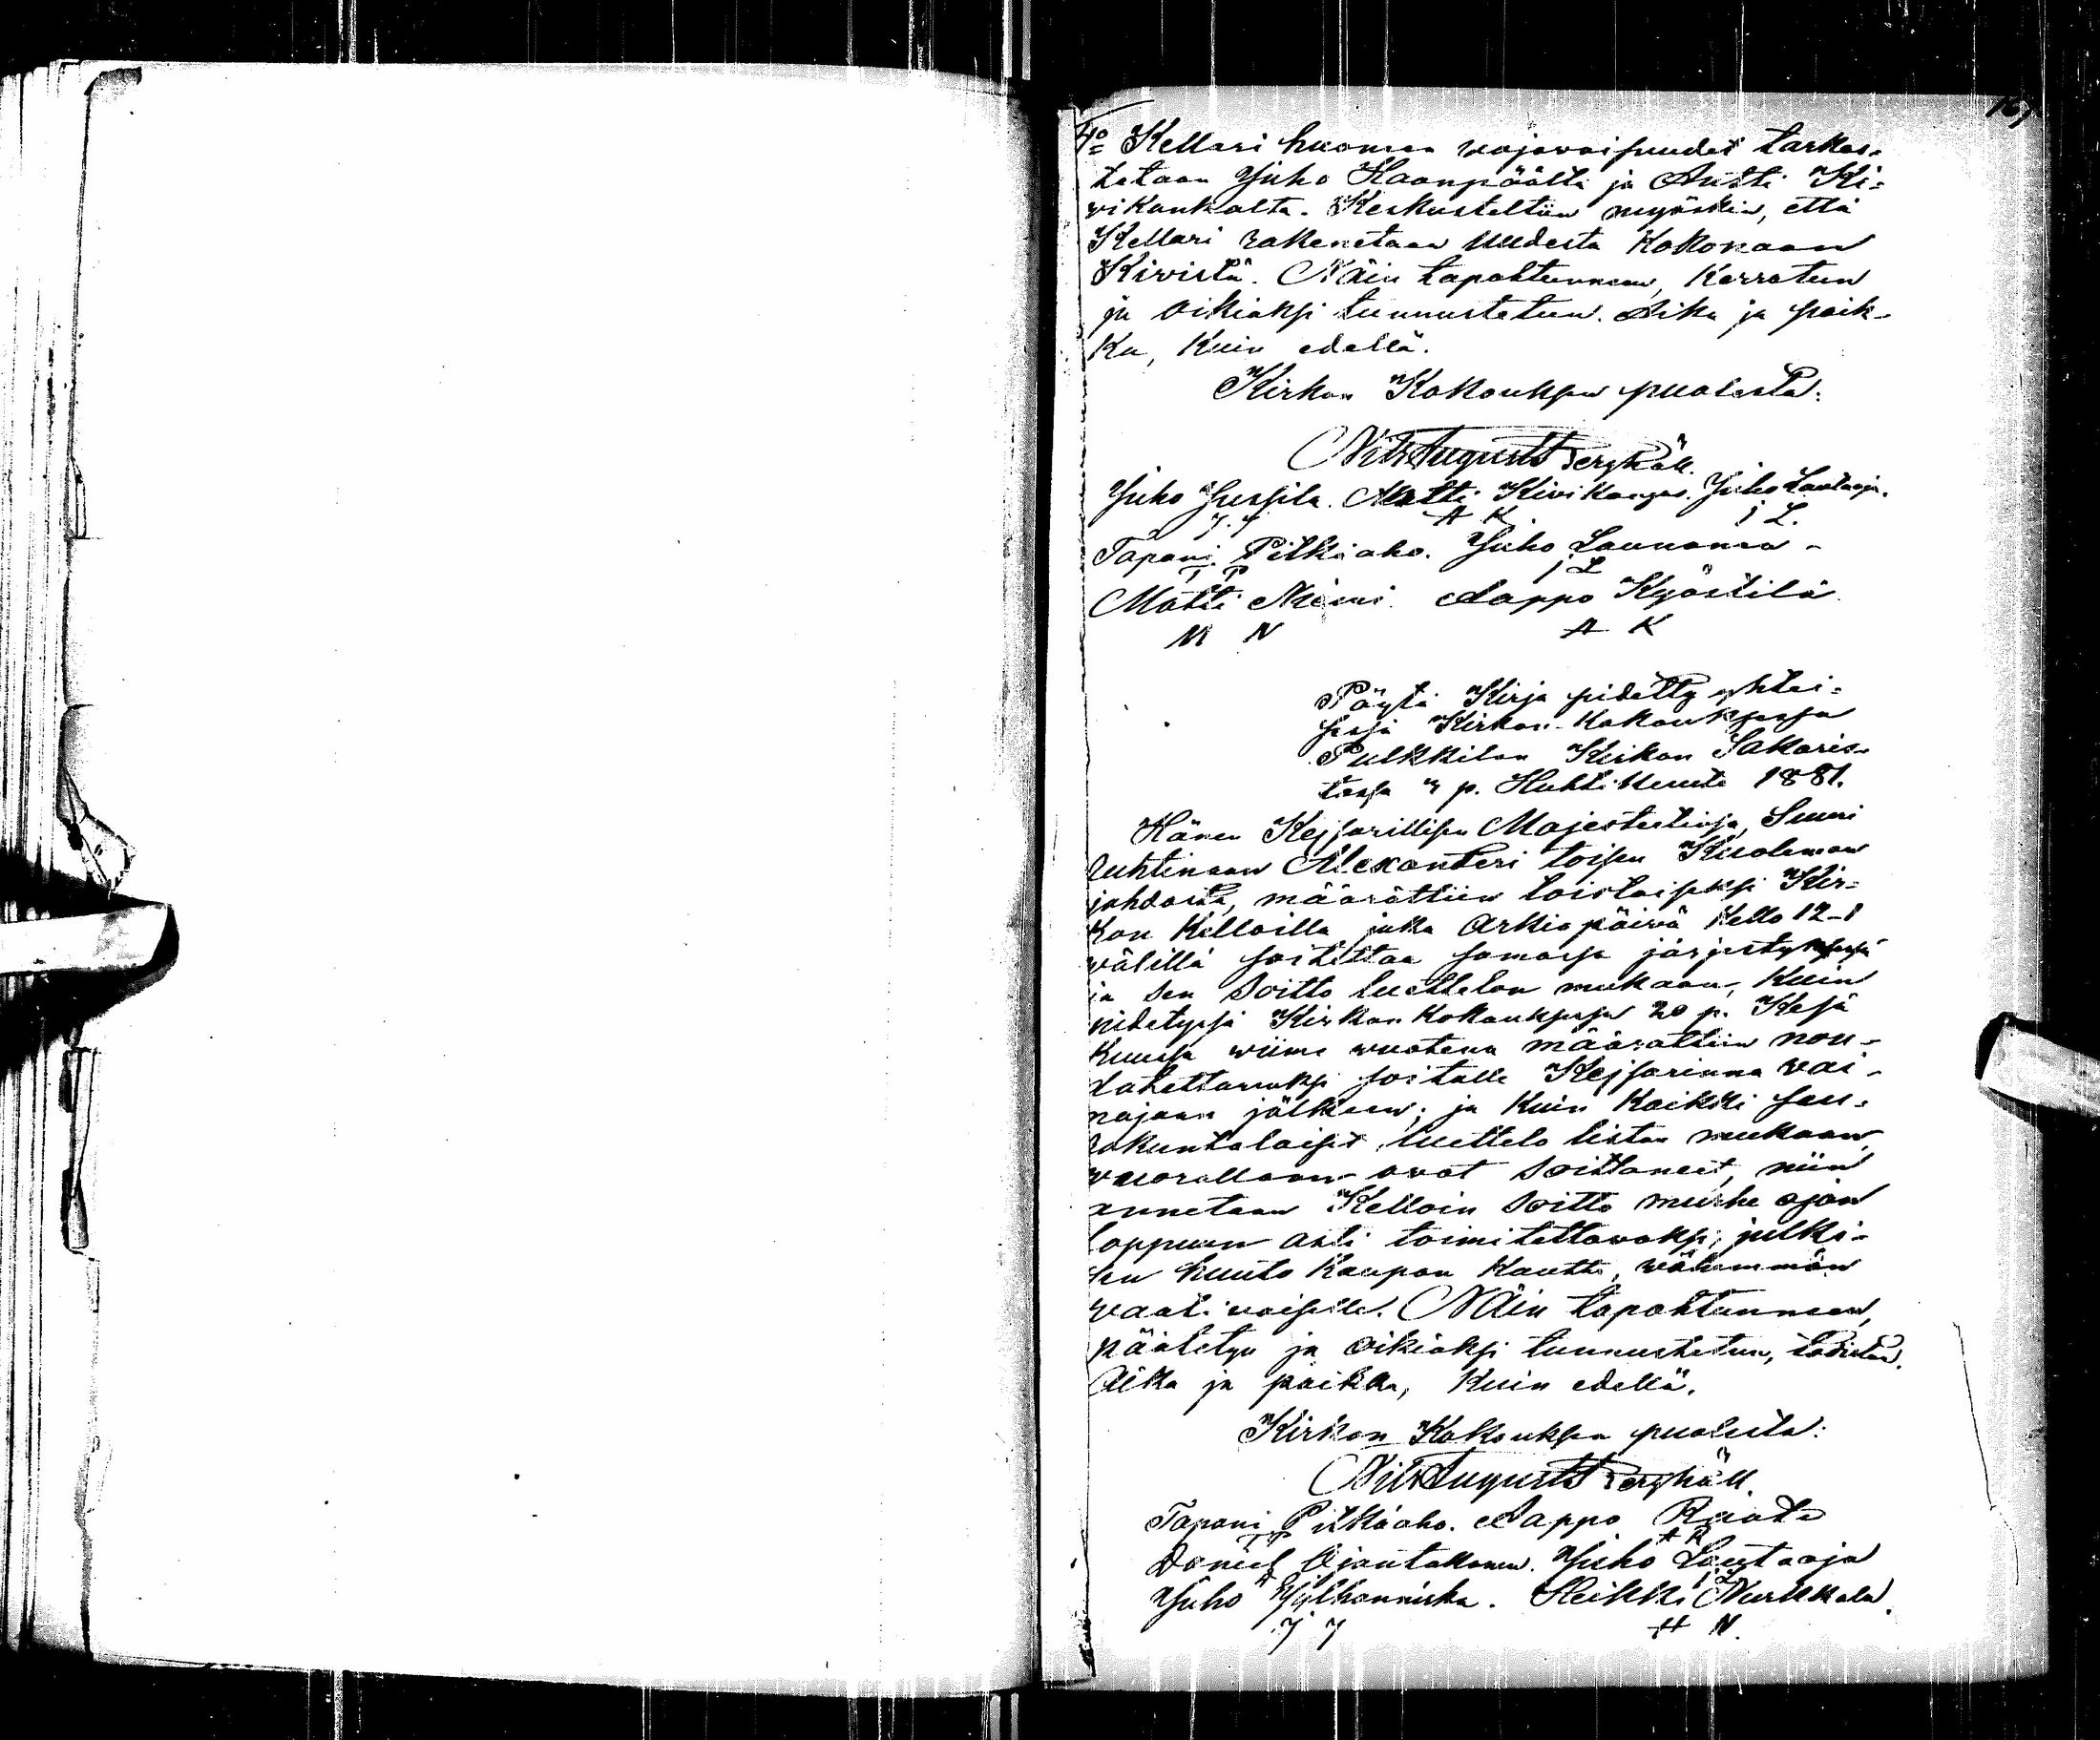 4:o Kellari huoneen vajavaisuudet tarkas-
tetaan Juho Haanpäältä ja Antti Ki-
vikankalta. Keskusteltiin myöskin, että
Kellari rakenetaan uudesta Kokonaan
Kivistä. Näin tapahtuneen, Kerrotun
ja oikiaksi tunnustetun. Aika ja paik-
ka, Kuin edellä.
Kirkon Kokouksen puolesta:
Nils August Berghäll.
Juho Jussila. Matti Kivikangas. Juho Lautaoja.
J. J. A K J L.
Tapani Pitkäaho. Juho Launonen
T P J L
Matti Niemi. Aappo Kyöstilä.
M N A K
Pöytä Kirja pidetty yhtei-
sesä Kirkon-Kokouksessa
Pulkkilan Kirkon Sakaris-
tossa 3 p. Huhtikuuta 1881.
Hänen Kejsarillisen Majesteetinsa, Suuri
ruhtinaan Alexanteri toisen Kuoleman
johdosta, määrättiin toistaiseksi Kir-
kon Kelloilla joka arkiapäivä Kello 12-1
välillä soitettaa samassa järjestyksessä
ja sen soitto luettelon mukaan, Kuin
pidetyssä Kirkon Kokouksessa 20 p. Kesä
Kuussa viime vuotena määrattiin nou-
datettavaksi soitolle Kejsarinna vai-
najaan jälkeen; ja Kuin Kaikki seu-
rakuntalaiset luettelo listan mukaan
vuorollaan ovat soittaneet, niin
annetaan Kelloin soitto murhe ajan
loppuun asti toimitettavaksi julki-
sen huuto Kaupan Kautta, vähemmän
vaativaiselle. Näin tapahtunneen,
päätetyn ja oikiaksi tunnustetun, todistan.
Aika ja paikka, Kuin edellä.
Kirkon Kokouksen puolesta:
Nils August Berghäll.
Tapani Pitkäaho. Aappo Raate
T P A R
Daniel Ojantakanen. Juho Lautaoja
J L
Juho Ylihanniska. Heikki Nurkkala.
J Y H N.